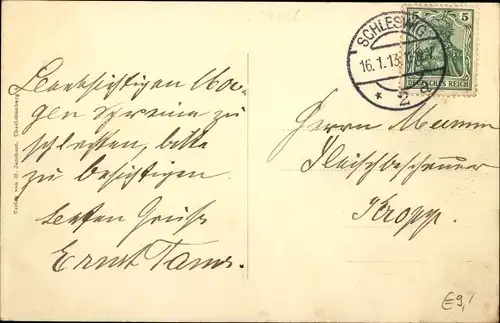 SCHLESWIG
16.1.13.
* 2 a
5 5
DEUTSCHES REICH
Beabsichtigen Mor-
gen zu
schlachten, bitte
zu besichtigen.
besten Gruß
Ernst Tams.
Herrn Mumm
Fleischbeschauer
Kropp.
Verlag von H. Jacobsen, Charlottenburg
€9,